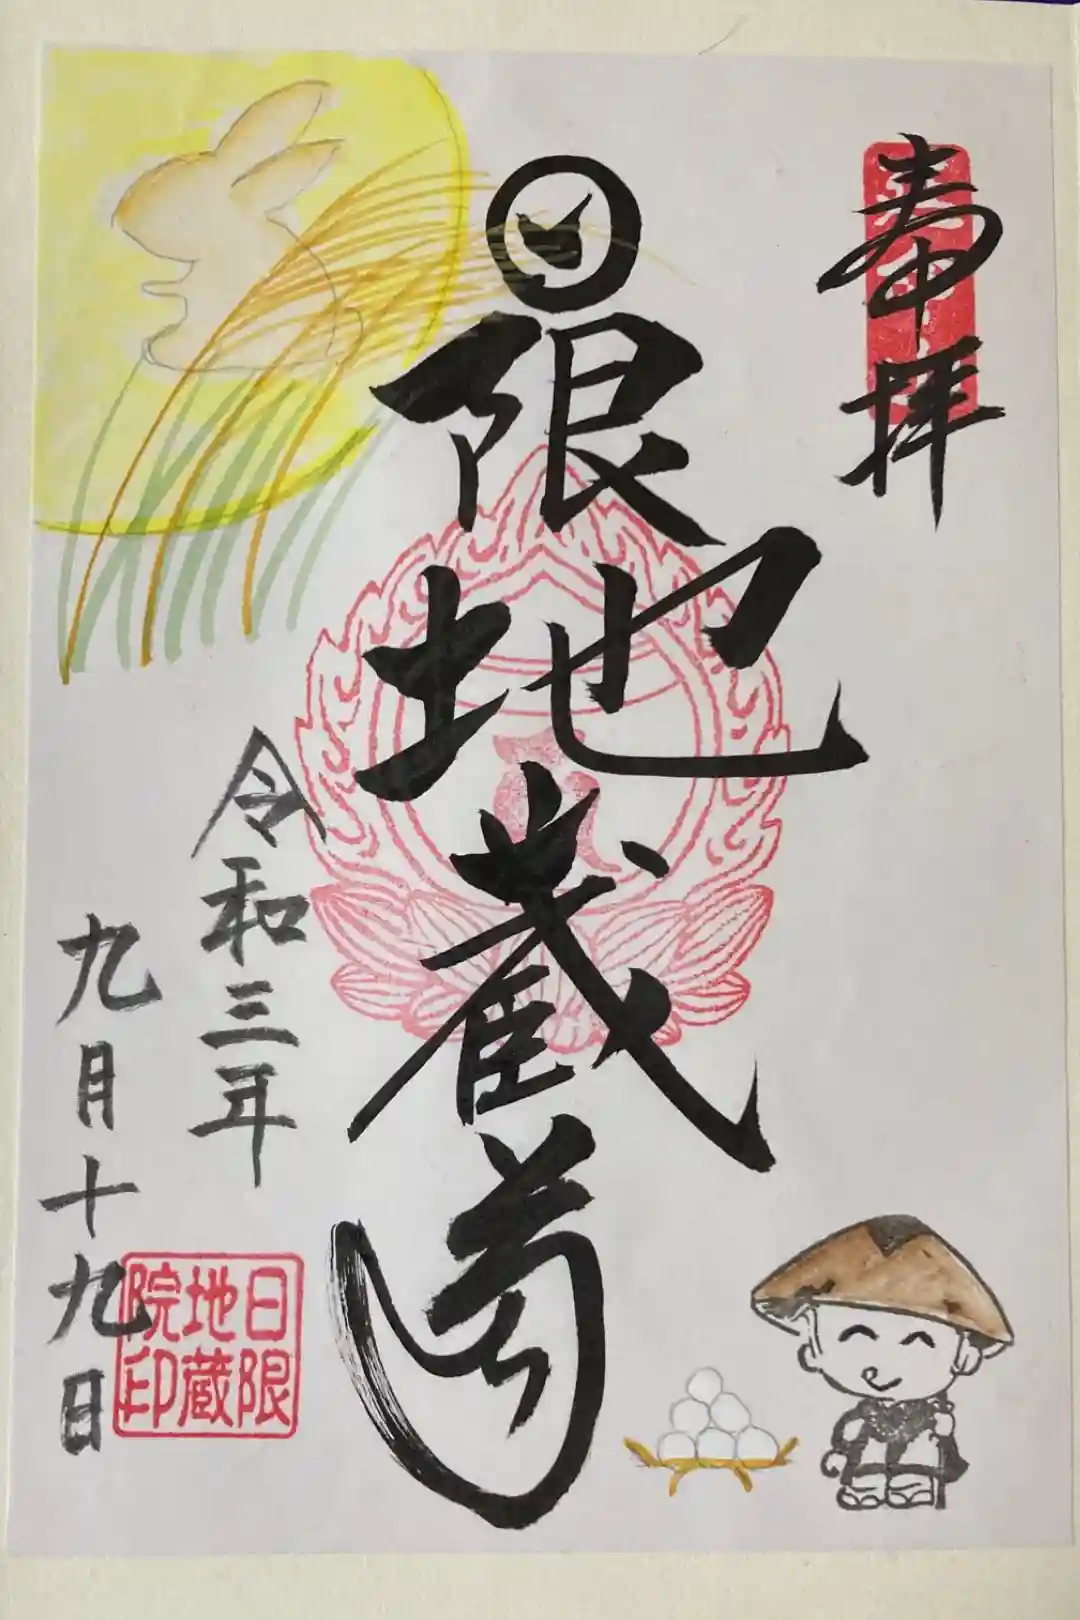 奉拝
日限地蔵尊
令和三年
九月十九日
日限
地蔵
院印